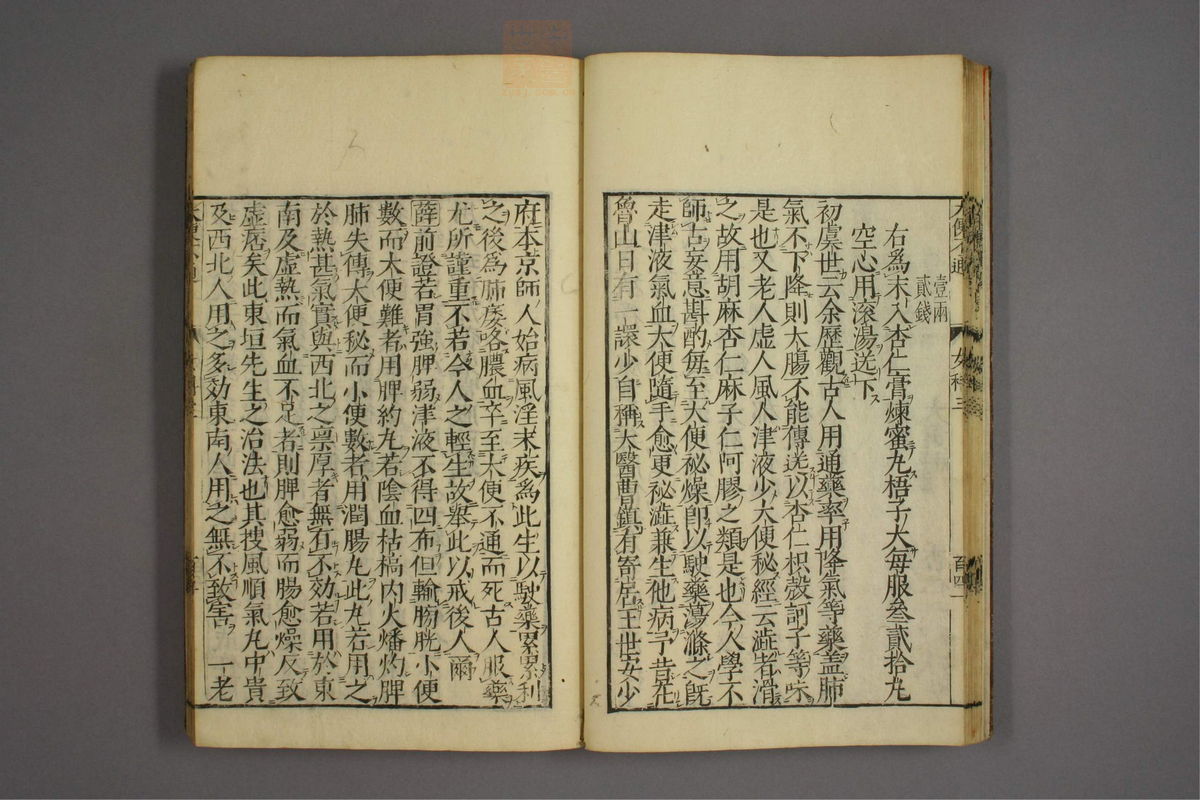 壹兩
貳錢
右爲末入杏仁膏煉蜜丸梧子大每服叁貳拾丸
空心用滾湯送下
初虞世云余歷觀古人用通藥率用降氣等藥盖肺
氣不下降則大腸不能傳送以杏仁枳殼訶子等味
是也又老人虛人風人津液少大便秘經云澁者滑
之故用胡麻杏仁麻子仁阿膠之類是也今人學不
師古妄意斟酌每至大便祕燥卽以駛藥蕩滌之旣
走津液氣血大便隨手愈更秘澁兼生他病予昔在
魯山日有一讓少自稱大醫曹鎮有寄居王世安少
府本京師人始病風淫末疾爲此生以駛藥累累利
之後爲肺疾咯膿血卒至大便不通而死古人服藥
尤所謹重不若今人之輕生故舉此以戒後人爾
薛前證若胃強脾弱津液不得四布但輸膀胱小便
數而大便難者用脾約丸若陰血枯槁內火燔灼脾
肺失傳大便秘而小便數者用潤腸丸此丸若用之
於熱甚氣實與西北之禀厚者無有不効若用於東
南及虛熱而氣血不足者則脾愈弱而腸愈燥反致
虛痞矣此東垣先生之治法也其搜風順氣丸中貴
及西北人用之多効東南人用之無不致害 一老
大便不通
女科三